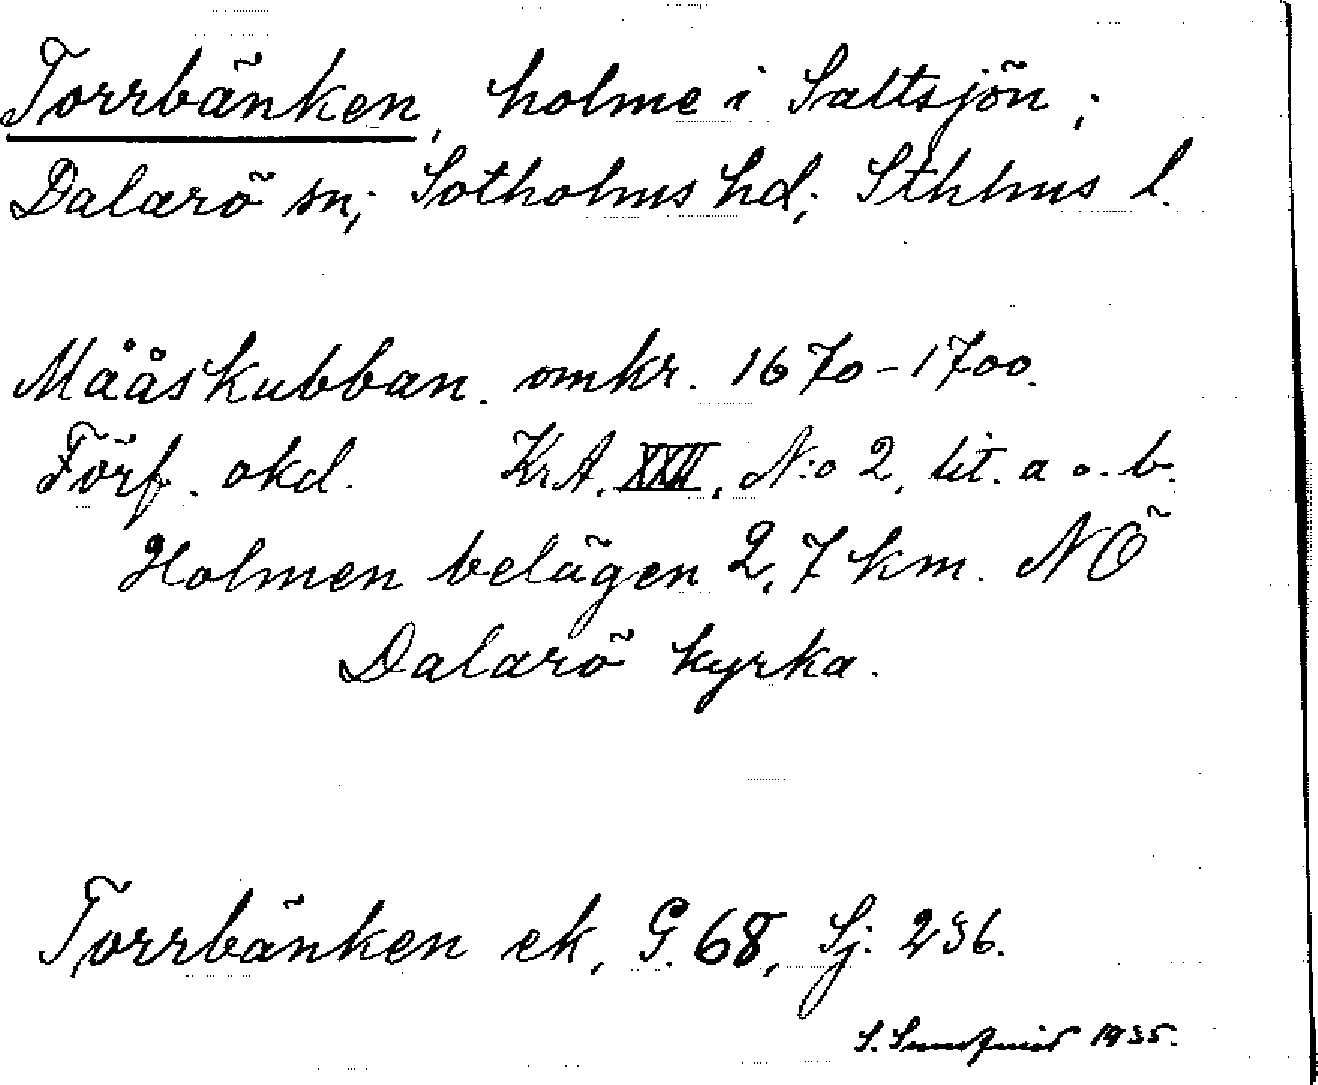 Torrbänken, holme i Saltsjön;
Dalarö sn; Sotholms hd; Sthlms l.
Mååskubban. omkr. 1670-1700.
Förf. okd. Kr.A. XXII, N:o 2, lit. a o. b.
Holmen belägen 2,7 km. NÖ
Dalarö kyrka.
Torrbänken ek, G. 68, Sj: 236.
S. 1935.